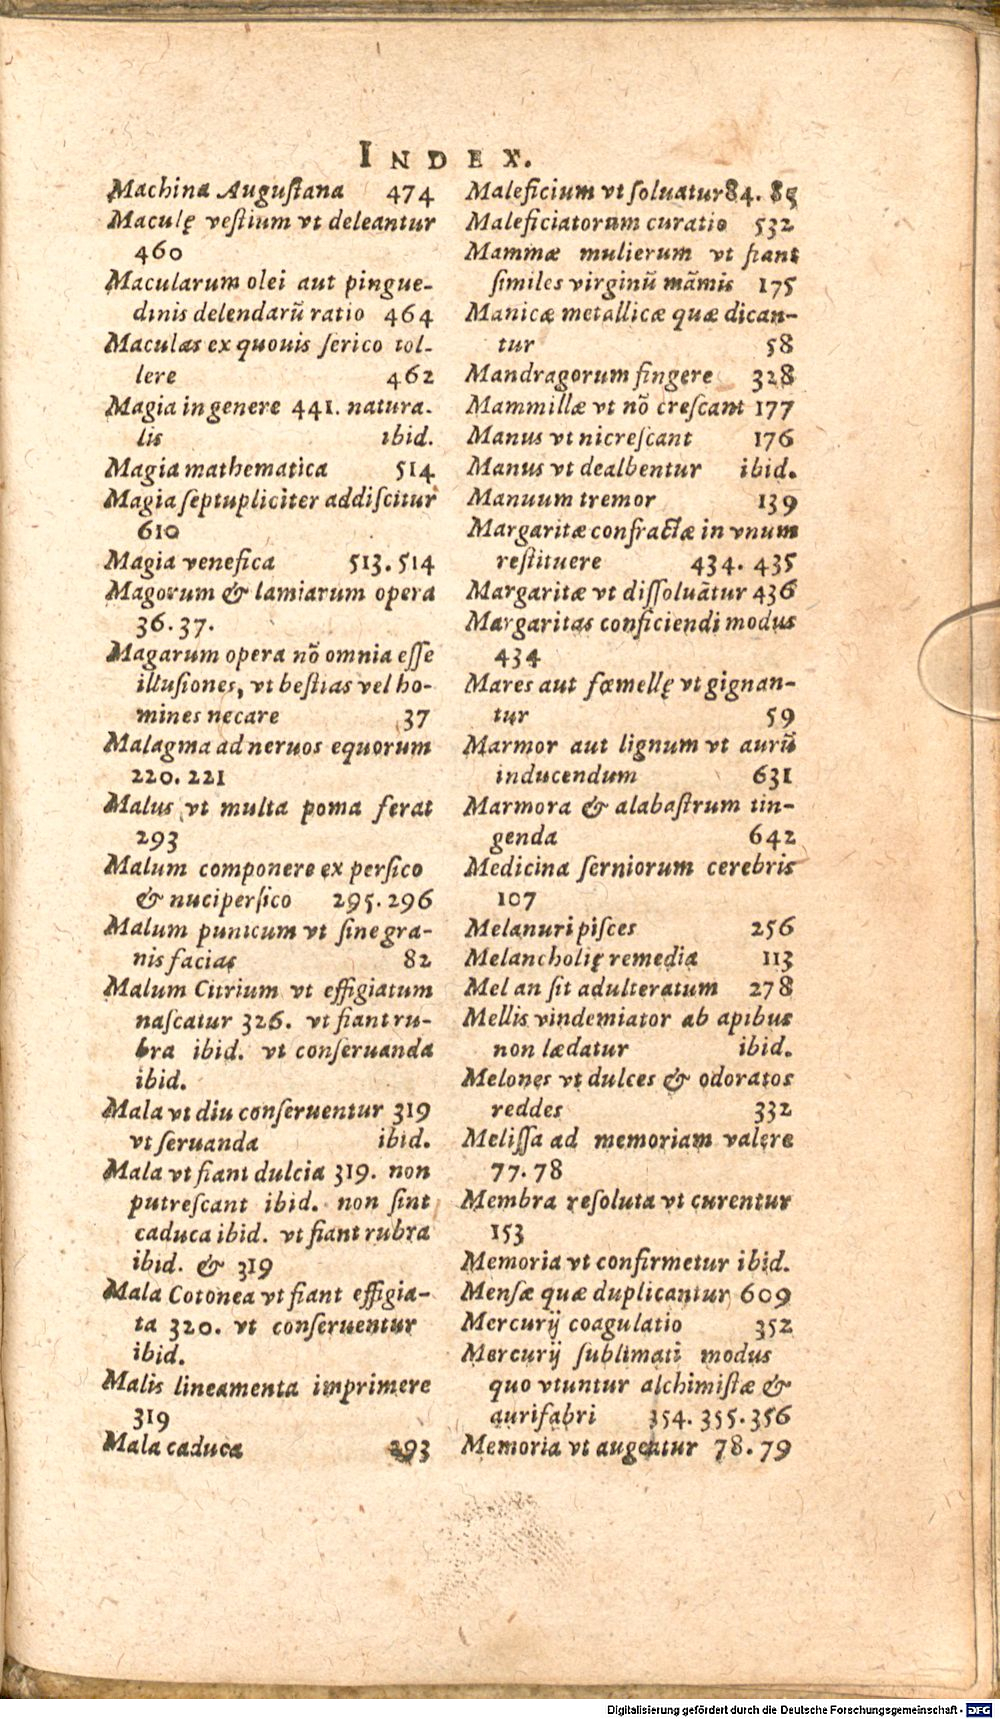 INDEX.
Machina Auguſtana 474
Maculę veſtium vt deleantur
460
Macularum olei aut pingue-
dinis delendarũ ratio 464
Maculas ex quouis ſerico tol-
lere 462
Magia in genere 441. natura-
lis ibid.
Magia mathematica 514
Magia ſeptupliciter addiſcitur
610
Magia venefica 513. 514
Magorum & lamiarum opera
36. 37.
Magarum opera nõ omnia eſſe
illuſiones, vt beſtias vel ho-
mines necare 37
Malagma ad neruos equorum
220. 221
Malus vt multa poma ferat
293
Malum componere ex perſico
& nuciperſico 295. 296
Malum punicum vt ſine gra-
nis facias 82
Malum Citrium vt effigiatum
naſcatur 326. vt fiant ru-
bra ibid. vt conſeruanda
ibid.
Mala vt diu conſeruentur 319
vt ſeruanda ibid.
Mala vt fiant dulcia 319. non
putreſcant ibid. non ſint
caduca ibid. vt fiant rubra
ibid. & 319
Mala Cotonea vt fiant effigia-
ta 320. vt conſeruentur
ibid.
Malis lineamenta imprimere
319
Mala caduca 293
Maleficium vt ſoluatur 84. 85
Maleficiatorum curatio 532
Mammæ mulierum vt fiant
ſimiles virginũ mãmis 175
Manicæ metallicæ quæ dican-
tur 58
Mandragorum fingere 328
Mammillæ vt nõ creſcant 177
Manus vt nicreſcant 176
Manus vt dealbentur ibid.
Manuum tremor 139
Margaritæ confractæ in vnum
reſtituere 434. 435
Margaritæ vt diſſoluãtur 436
Margaritas conficiendi modus
434
Mares aut fœmellę vt gignan-
tur 59
Marmor aut lignum vt aurũ
inducendum 631
Marmora & alabaſtrum tin-
genda 642
Medicina ſerniorum cerebris
107
Melanuri piſces 256
Melancholię remedia 113
Mel an ſit adulteratum 278
Mellis vindemiator ab apibus
non lædatur ibid.
Melones vt dulces & odoratos
reddes 332
Meliſſa ad memoriam valere
77. 78
Membra reſoluta vt curentur
153
Memoria vt confirmetur ibid.
Menſæ quæ duplicantur 609
Mercurij coagulatio 352
Mercurij ſublimati modus
quo vtuntur alchimiſtæ &
aurifabri 354. 355. 356
Memoria vt augentur 78. 79
Digitalisierung gefördert durch die Deutsche Forschungsgemeinschaft - DFG